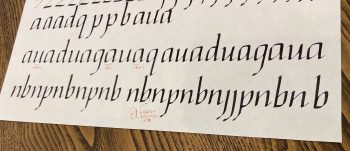 aaadqppbaua
auaduagauaq auaduagaua
nbnpnbnpnb nbnpnbnjjpnbnb